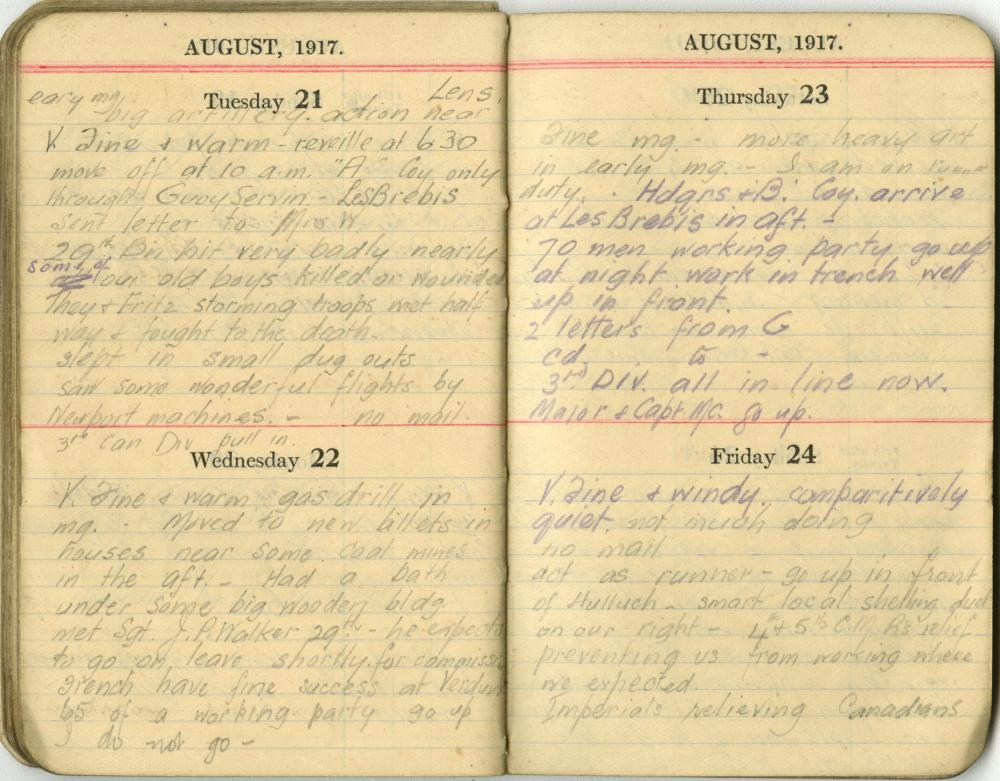 AUGUST, 1917.
Tuesday 21
eary mg. Lens,
big artillery. action near
V. Fine & warm - reveille at 6 30
move off at 10 a.m. "A" Coy only
through Guoy Servin - Les Brebis
sent letter to Miss W
29th Bn hit very badly nearly
some of our old boys killed or wounded
They & Fritz storming troops met half
way & fought to the death.
slept in small dug outs
saw some wonderful flights by
Newport machines. - no mail.
3rd Can Div pull in.
Wednesday 22
V. Fine & warm - gas drill in
mg. - Moved to new billets in
houses near some coal mines
in the aft. - Had a bath
under some big wooden bldg
met Sgt. J.P. Walker 29th - he expects
to go on leave shortly. for commiss
French have fine success at Verdun
65 of a working party go up
I do not go -
AUGUST, 1917.
Thursday 23
Fine mg. - more heavy art
in early mg. - I am on runner
duty. - Hdqrs & B. Coy. arrive
at Les Brebis in aft. -
70 men working party go up
at night work in trench well
up in front.
2 letters from G
cd. to -
3rd Div. all in line now.
Major & Capt Mc. go up.
Friday 24
V. Fine & windy. comparitively
quiet. not much doing
no mail
act as runner - go up in front
of Hulluch - smart local shelling duel
on our right - 4th & 5th C.M.R's relief
preventing us from working where
we expected.
Imperials relieving Canadians